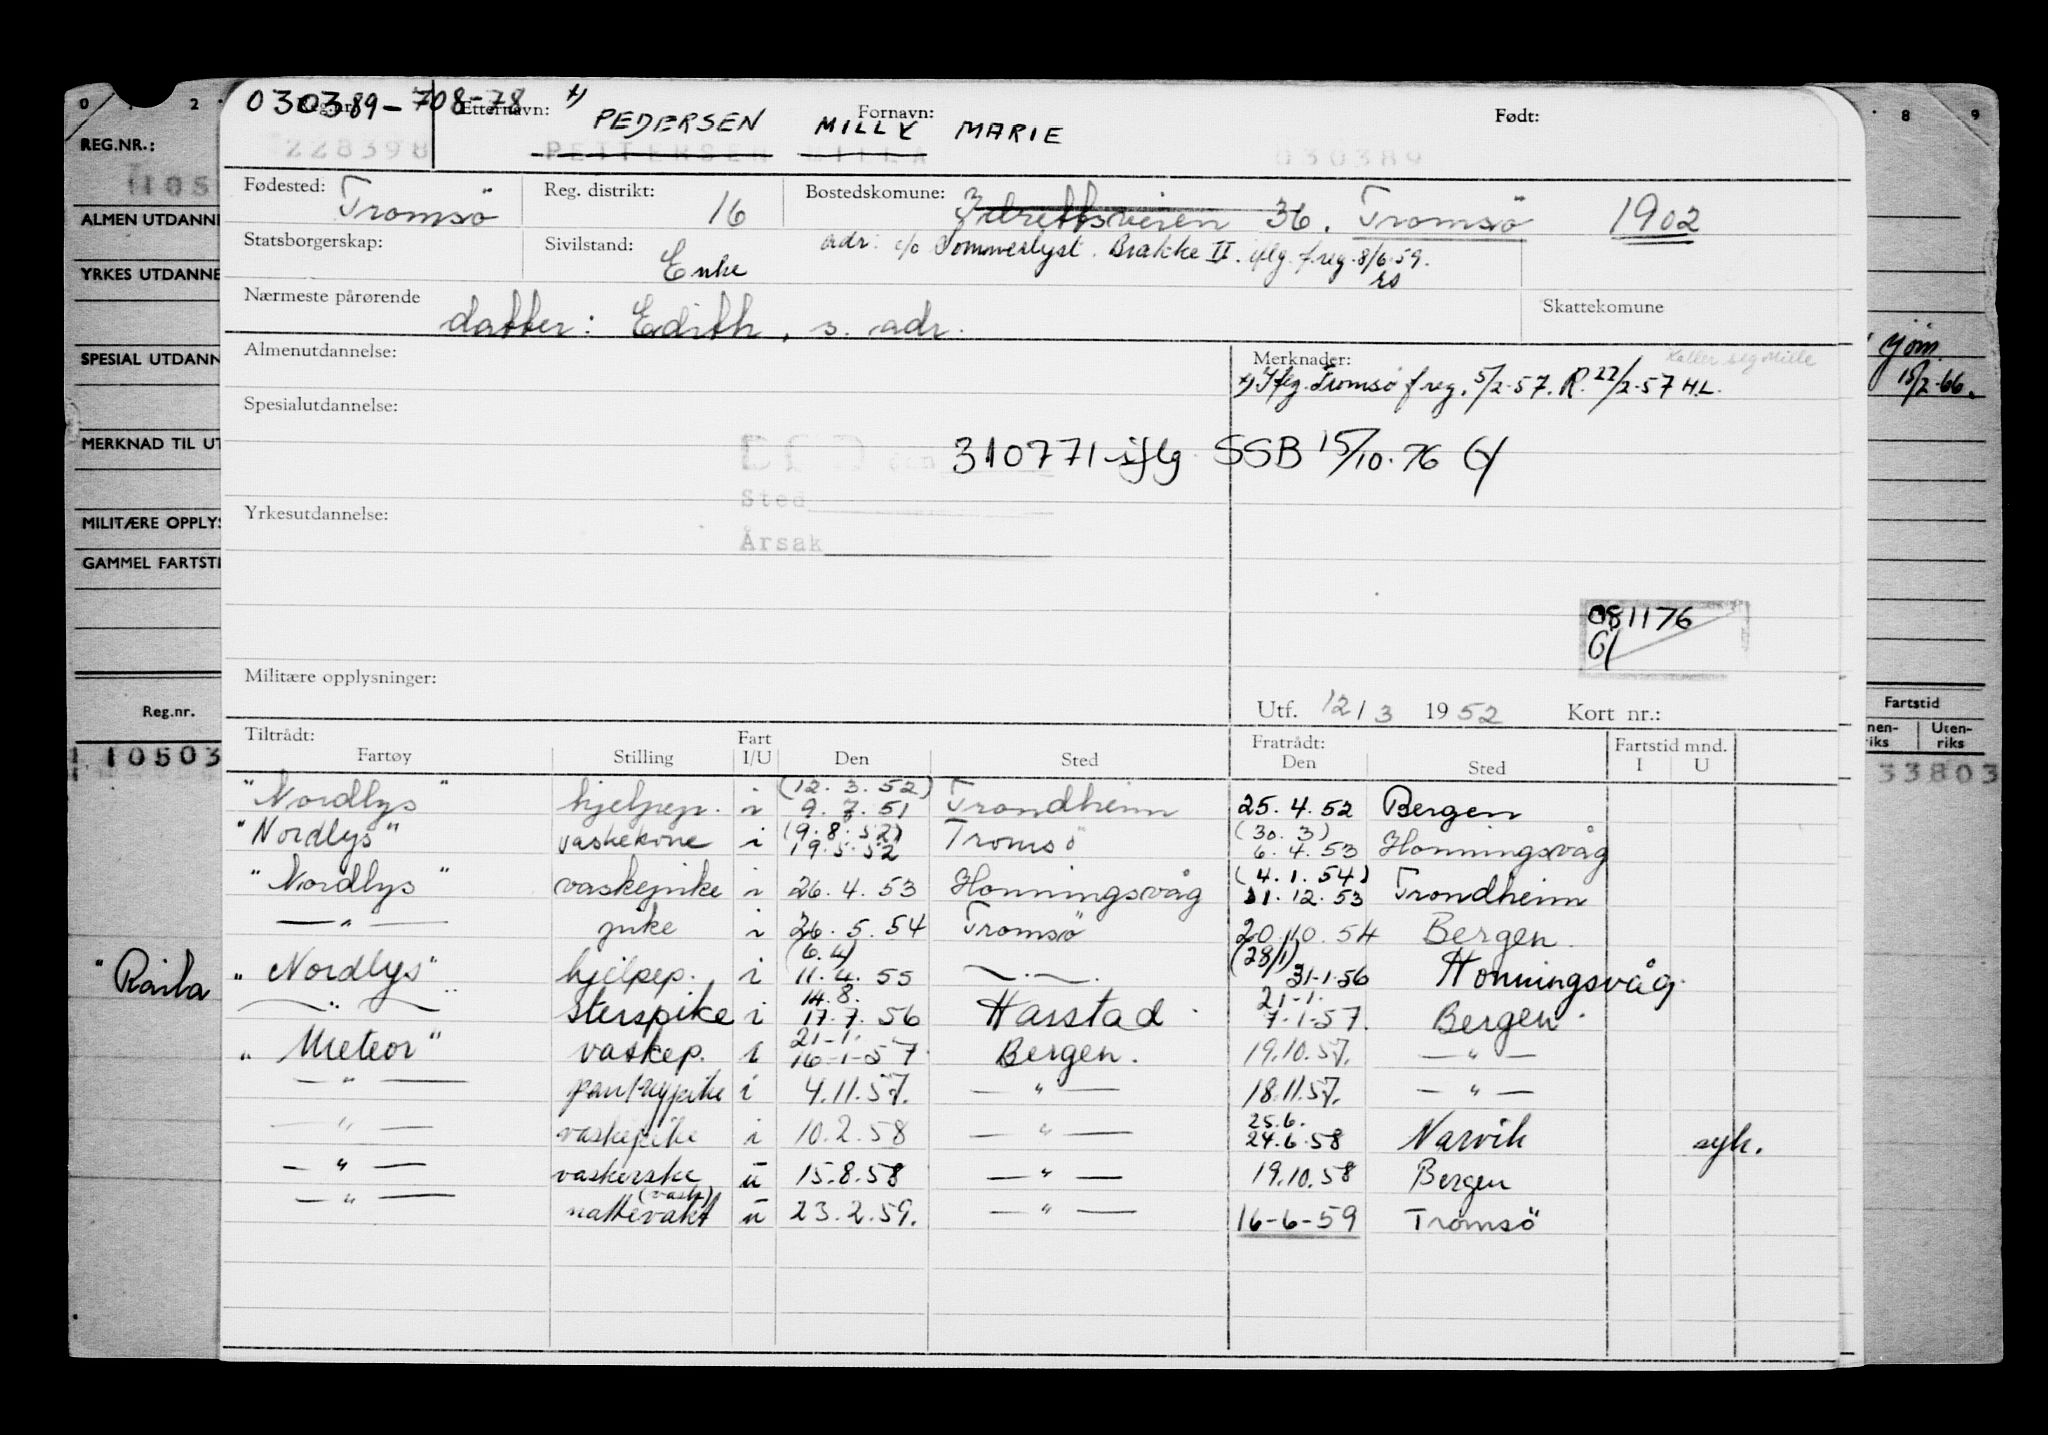 030389-708-78
Reg.nr. Etternavn: x) PEDERSEN Fornavn: MILLY MARIE Født:
228398 PETTERSEN MILLA 030389
Fødested: Tromsö Reg. distrikt: 16 Bostedskomune: Idrettsveien 36. Tromsö 1902
Statsborgerskap: Sivilstand: Enke adr: c/o Sommerlyst. Brakke II. iflg. freg. 8/6.59. rs
Nærmeste pårørende datter: Edith, s. adr. Skattekomune
Almenutdannelse: Merknader: Kaller seg Mille
x) Iflg. Tromsø freg. 5/2-57. R. 22/2-57 H.L.
Spesialutdannelse:
DØD den 310771 iflg SSB 15/10.76
Sted
Yrkesutdannelse:
Årsak
081176
Militære opplysninger:
Utf. 12/3 1952 Kort nr.:
Tiltrådt: Fartøy Stilling Fart I/U Den Sted Fratrådt: Den Sted Fartstid mnd. I U
"Nordlys" hjelpep. i (12.3.52) 9.7.51 Trondheim 25.4.52 Bergen
"Nordlys" vaskekone i (9.8.52) 19.5.52 Tromsö (30.3) 6.4.53 Honningsvåg
"Nordlys" vaskepike i 26.4.53 Honningsvåg (4.1.54) 31.12.53 Trondheim
— " — pike i 26.5.54 Tromsö 20.10.54 Bergen.
"Nordlys" hjelpep. i (6.4) 11.4.55 — " — (28/1) 31-1-56 Honningsvåg.
— " — Sterspike i 14.8. 17.7.56 Harstad 21-1. 7-1-57. Bergen.
"Meteor" vaskep. i 21-1. 16-1-57 Bergen. 19.10.57. — " —
— " — i 4.11.57. — " — 18.11.57. — " —
— " — vaskepike i 10.2.58 — " — 25.6. 24.6.58 Narvik syk.
— " — vaskerske u 15.8.58 — " — 19.10.58 Bergen
— " — (vask) nattevakt u 23.2.59. — " — 16-6-59 Tromsö
0 1 2
REG.NR.:
ALMEN UTDANNE
YRKES UTDANNE
SPESIAL UTDANN
MERKNAD TIL UT
MILITÆRE OPPLYS
GAMMEL FARTSTI
Reg.nr.
10503
8 9
15/2-66.
Fartstid
nen-riks Uten-riks
33803